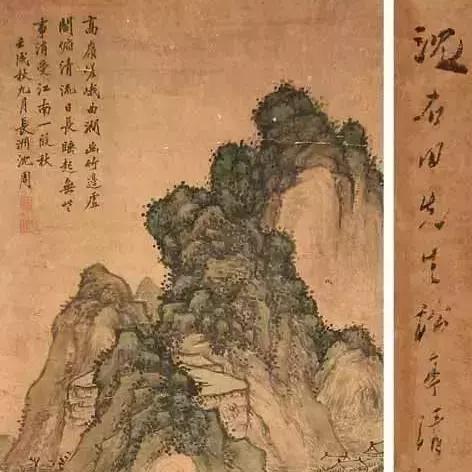 高嶺嵯峨曲湖幽竹邊虛
閣俯清流日長睡起無些
事消受江南一段秋
壬戌秋九月長洲沈周
沈石田先生秋亭清